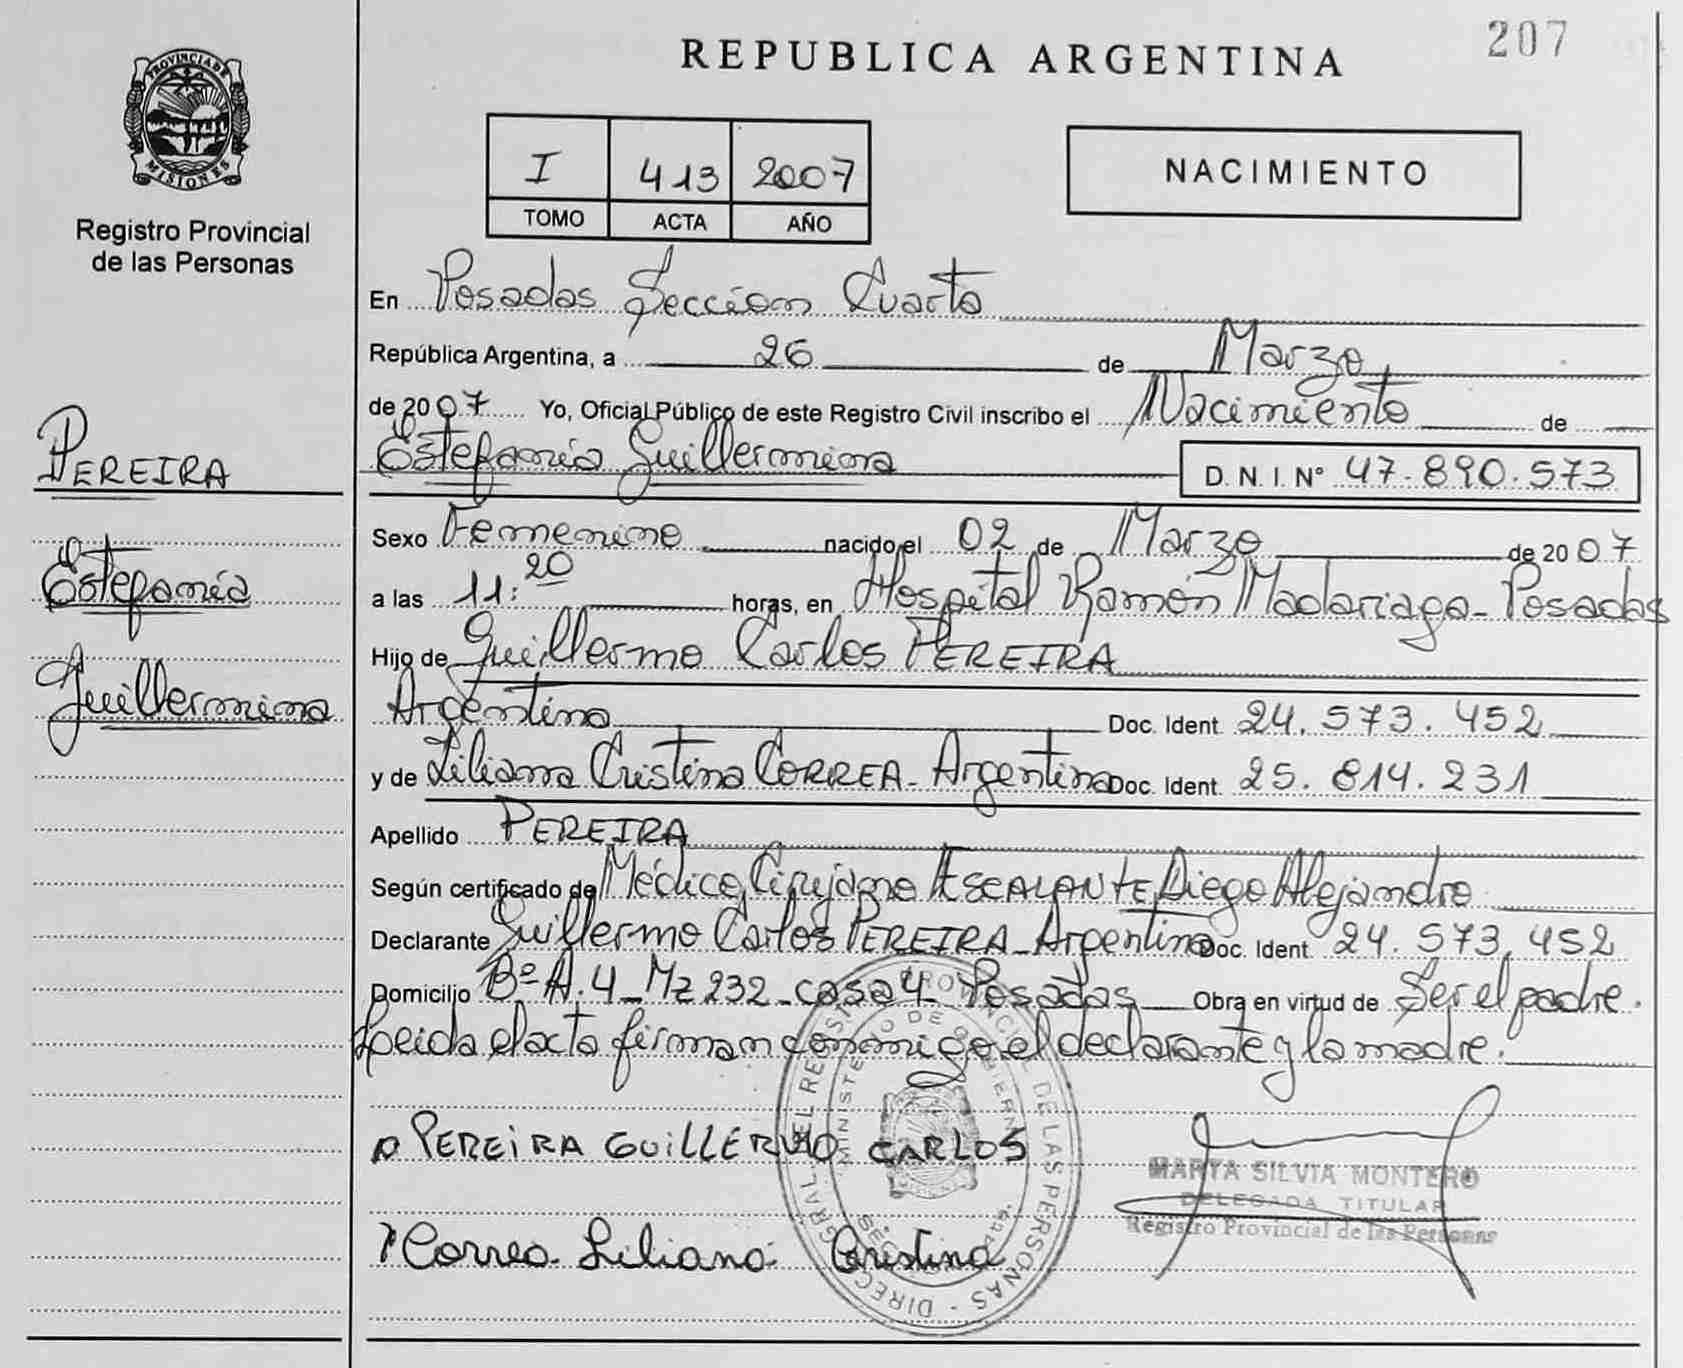 207
REPUBLICA ARGENTINA
PROVINCIA DE MISIONES
Registro Provincial
de las Personas
I 413 2007
TOMO ACTA AÑO
NACIMIENTO
En Posadas Sección Cuarta
República Argentina, a 26 de Marzo
de 2007 Yo, Oficial Público de este Registro Civil inscribo el Nacimiento de
Estefanía Guillermina D. N. I. Nº 47.890.573
Sexo Femenino nacido el 02 de Marzo de 2007
a las 11:20 horas, en Hospital Ramón Madariaga - Posadas
Hijo de Guillermo Carlos PEREIRA
Argentino Doc. Ident. 24.573.452
y de Liliana Cristina CORREA - Argentina Doc. Ident. 25.814.231
Apellido PEREIRA
Según certificado de Médico Cirujano ESCALANTE, Diego Alejandro
Declarante Guillermo Carlos PEREIRA - Argentino Doc. Ident. 24.573.452
Domicilio Bº A.4 - Mz 232 - casa 4 - Posadas Obra en virtud de Ser el padre.
Leida el acta firman conmigo el declarante y la madre.
PEREIRA GUILLERMO CARLOS
Correa Liliana Cristina
MARTA SILVIA MONTERO
DELEGADA TITULAR
Registro Provincial de las Personas
DIRECC GRAL DEL REGISTRO PROVINCIAL DE LAS PERSONAS -
MINISTERIO DE GOBIERNO
PEREIRA
Estefanía
Guillermina